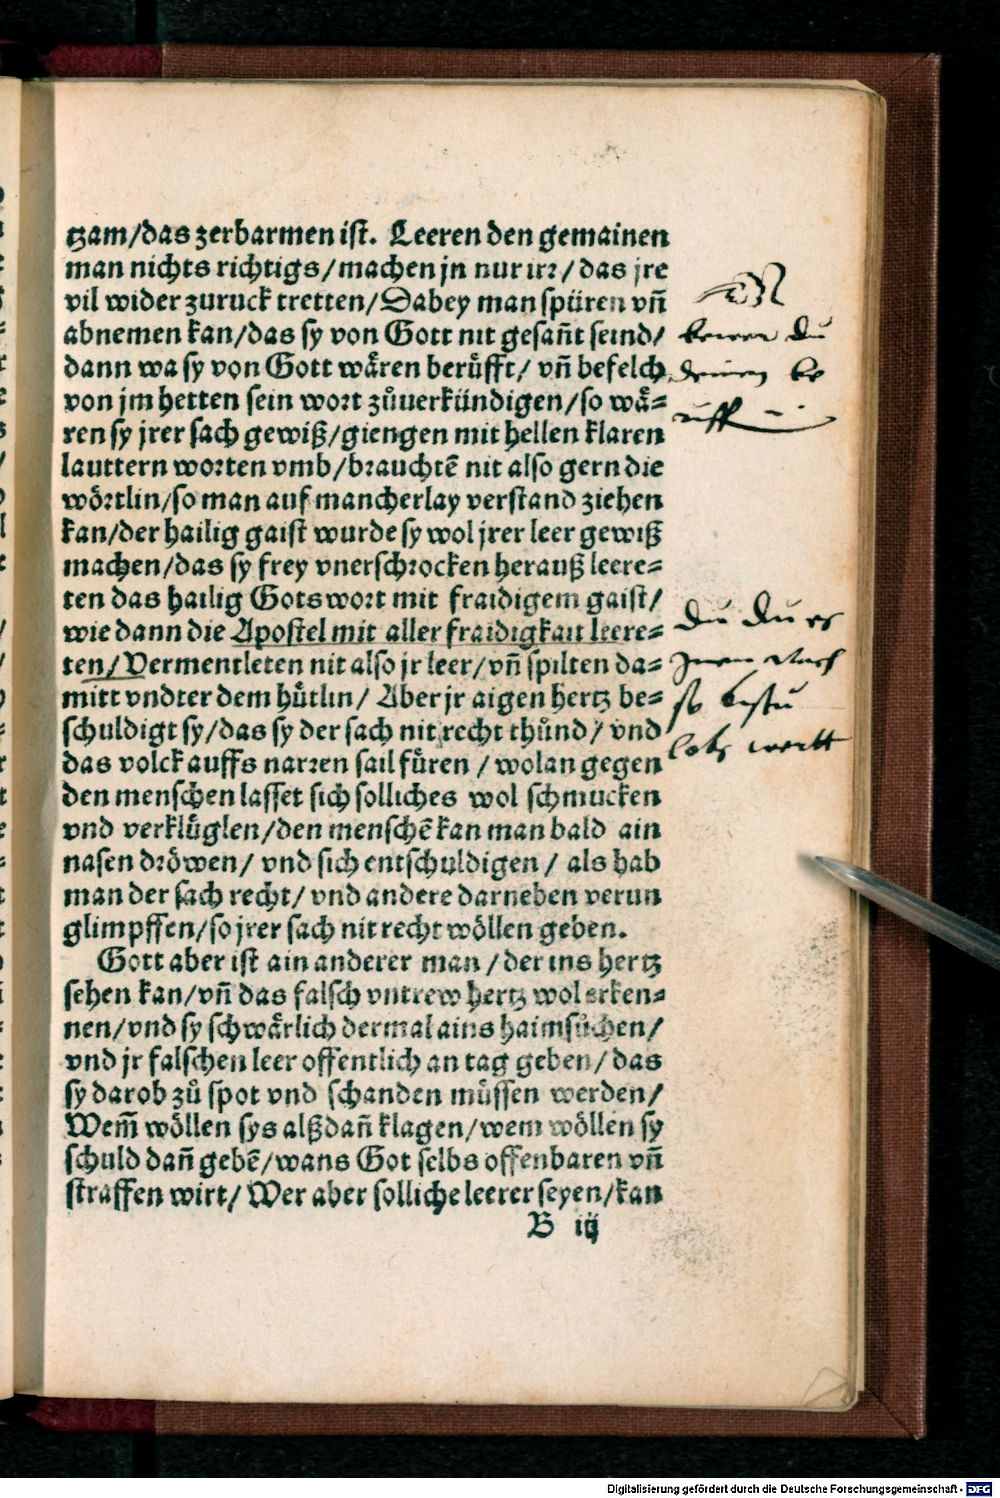 tzam/das zerbarmen ist. Leeren den gemainen
man nichts richtigs/machen jn nur irr/das jre
vil wider zuruck tretten/Dabey man spüren vñ
abnemen kan/das sy von Gott nit gesañt seind/
dann wa sy von Gott wåren berůfft/ vñ befelch
von jm hetten sein wort zůuerkündigen/so wå=
ren sy jrer sach gewiß/giengen mit hellen klaren
lauttern worten vmb/brauchtē nit also gern die
wörtlin/so man auf mancherlay verstand ziehen
kan/der hailig gaist wurde sy wol jrer leer gewiß
machen/das sy frey vnerschrocken herauß leere=
ten das hailig Gotswort mit fraidigem gaist/
wie dann die Apostel mit aller fraidigkait leere=
ten/Vermentleten nit also jr leer/vñ spilten da=
mitt vndter dem hůtlin/ Aber jr aigen hertz be=
schuldigt sy/das sy der sach nit recht thůnd/ vnd
das volck auffs narren sail füren /wolan gegen
den menschen lasset sich solliches wol schmucken
vnd verklůglen/den menschē kan man bald ain
nasen dröwen/ vnd sich entschuldigen/ als hab
man der sach recht/ vnd andere darneben verun
glimpffen/so jrer sach nit recht wöllen geben.
Gott aber ist ain anderer man /der ins hertz
sehen kan/vñ das falsch vntrew hertz wol erken=
nen/vnd sy schwårlich dermal ains haimsůchen/
vnd jr falschen leer offentlich an tag geben/das
sy darob zů spot vnd schanden můssen werden/
Wem̃ wöllen sys alßdañ klagen/wem wöllen sy
schuld dañ gebē/wans Got selbs offenbaren vñ
straffen wirt/ Wer aber solliche leerer seyen/kan
B iij
du
deinen be
ruff
Du Du es
so
Digitalisierung gefördert durch die Deutsche Forschungsgemeinschaft - DFG